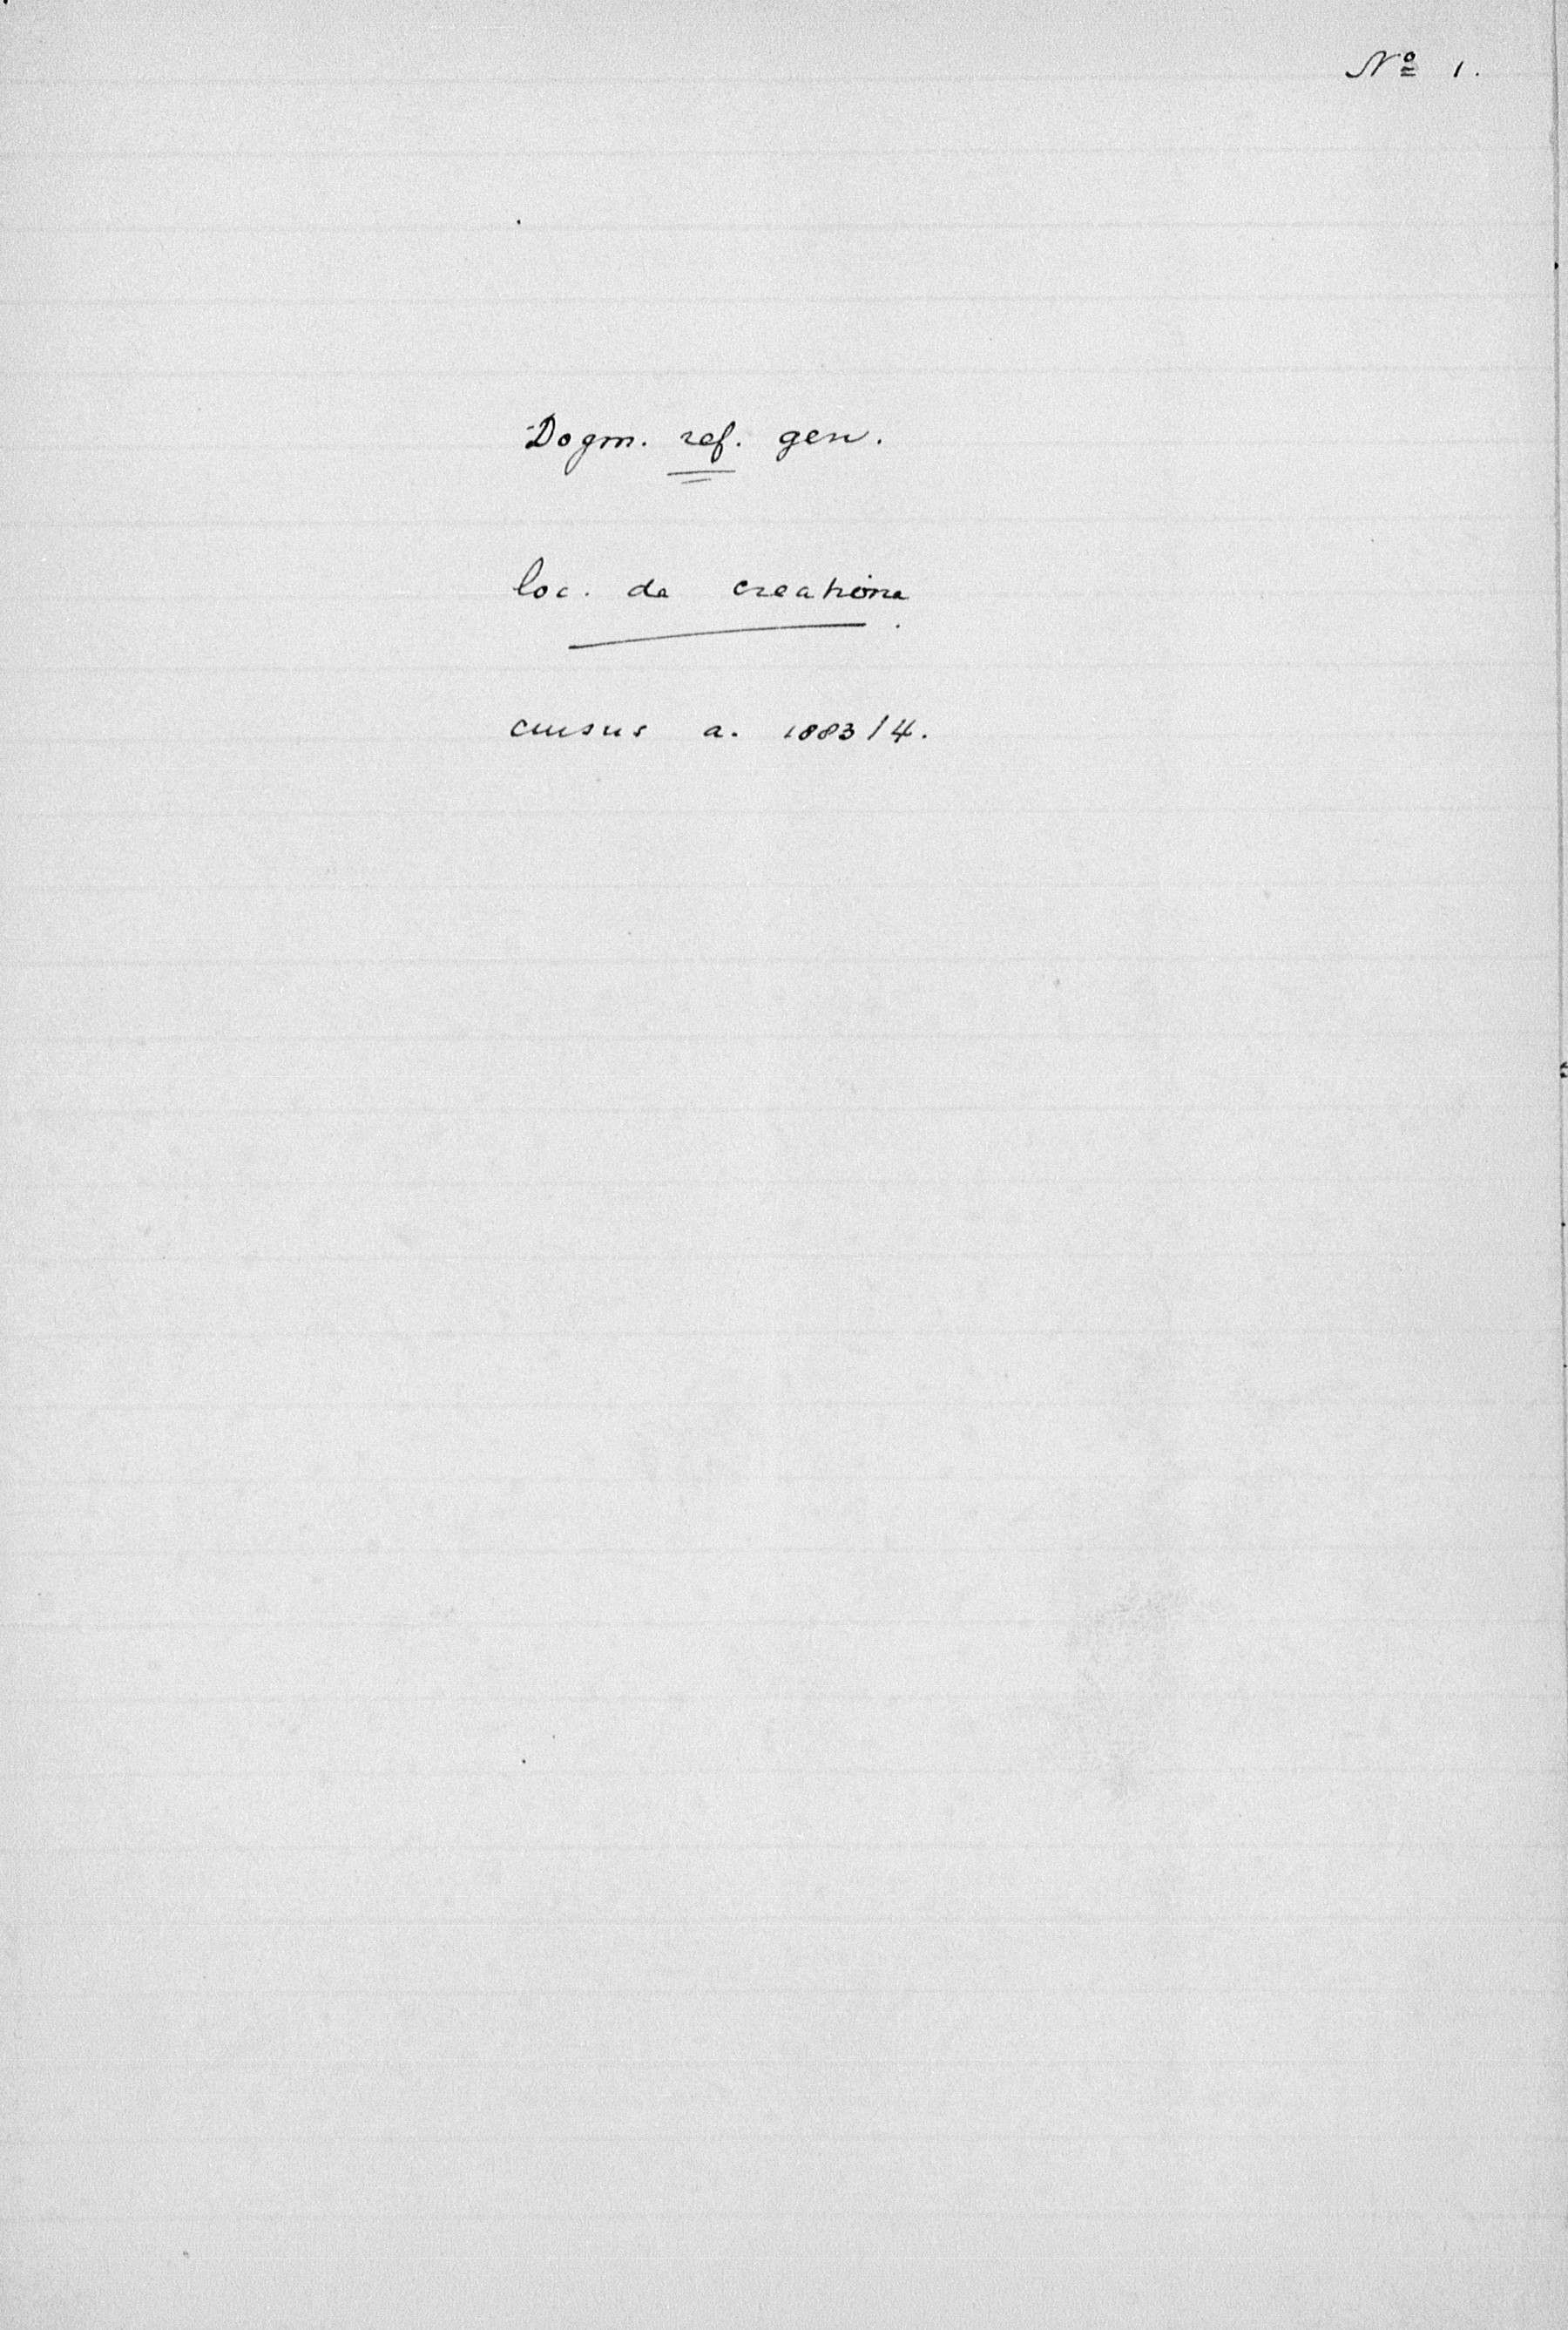 Nº 1.
Dogm. ref. gen.
loc. de creatione.
cursus a. 1883/4.